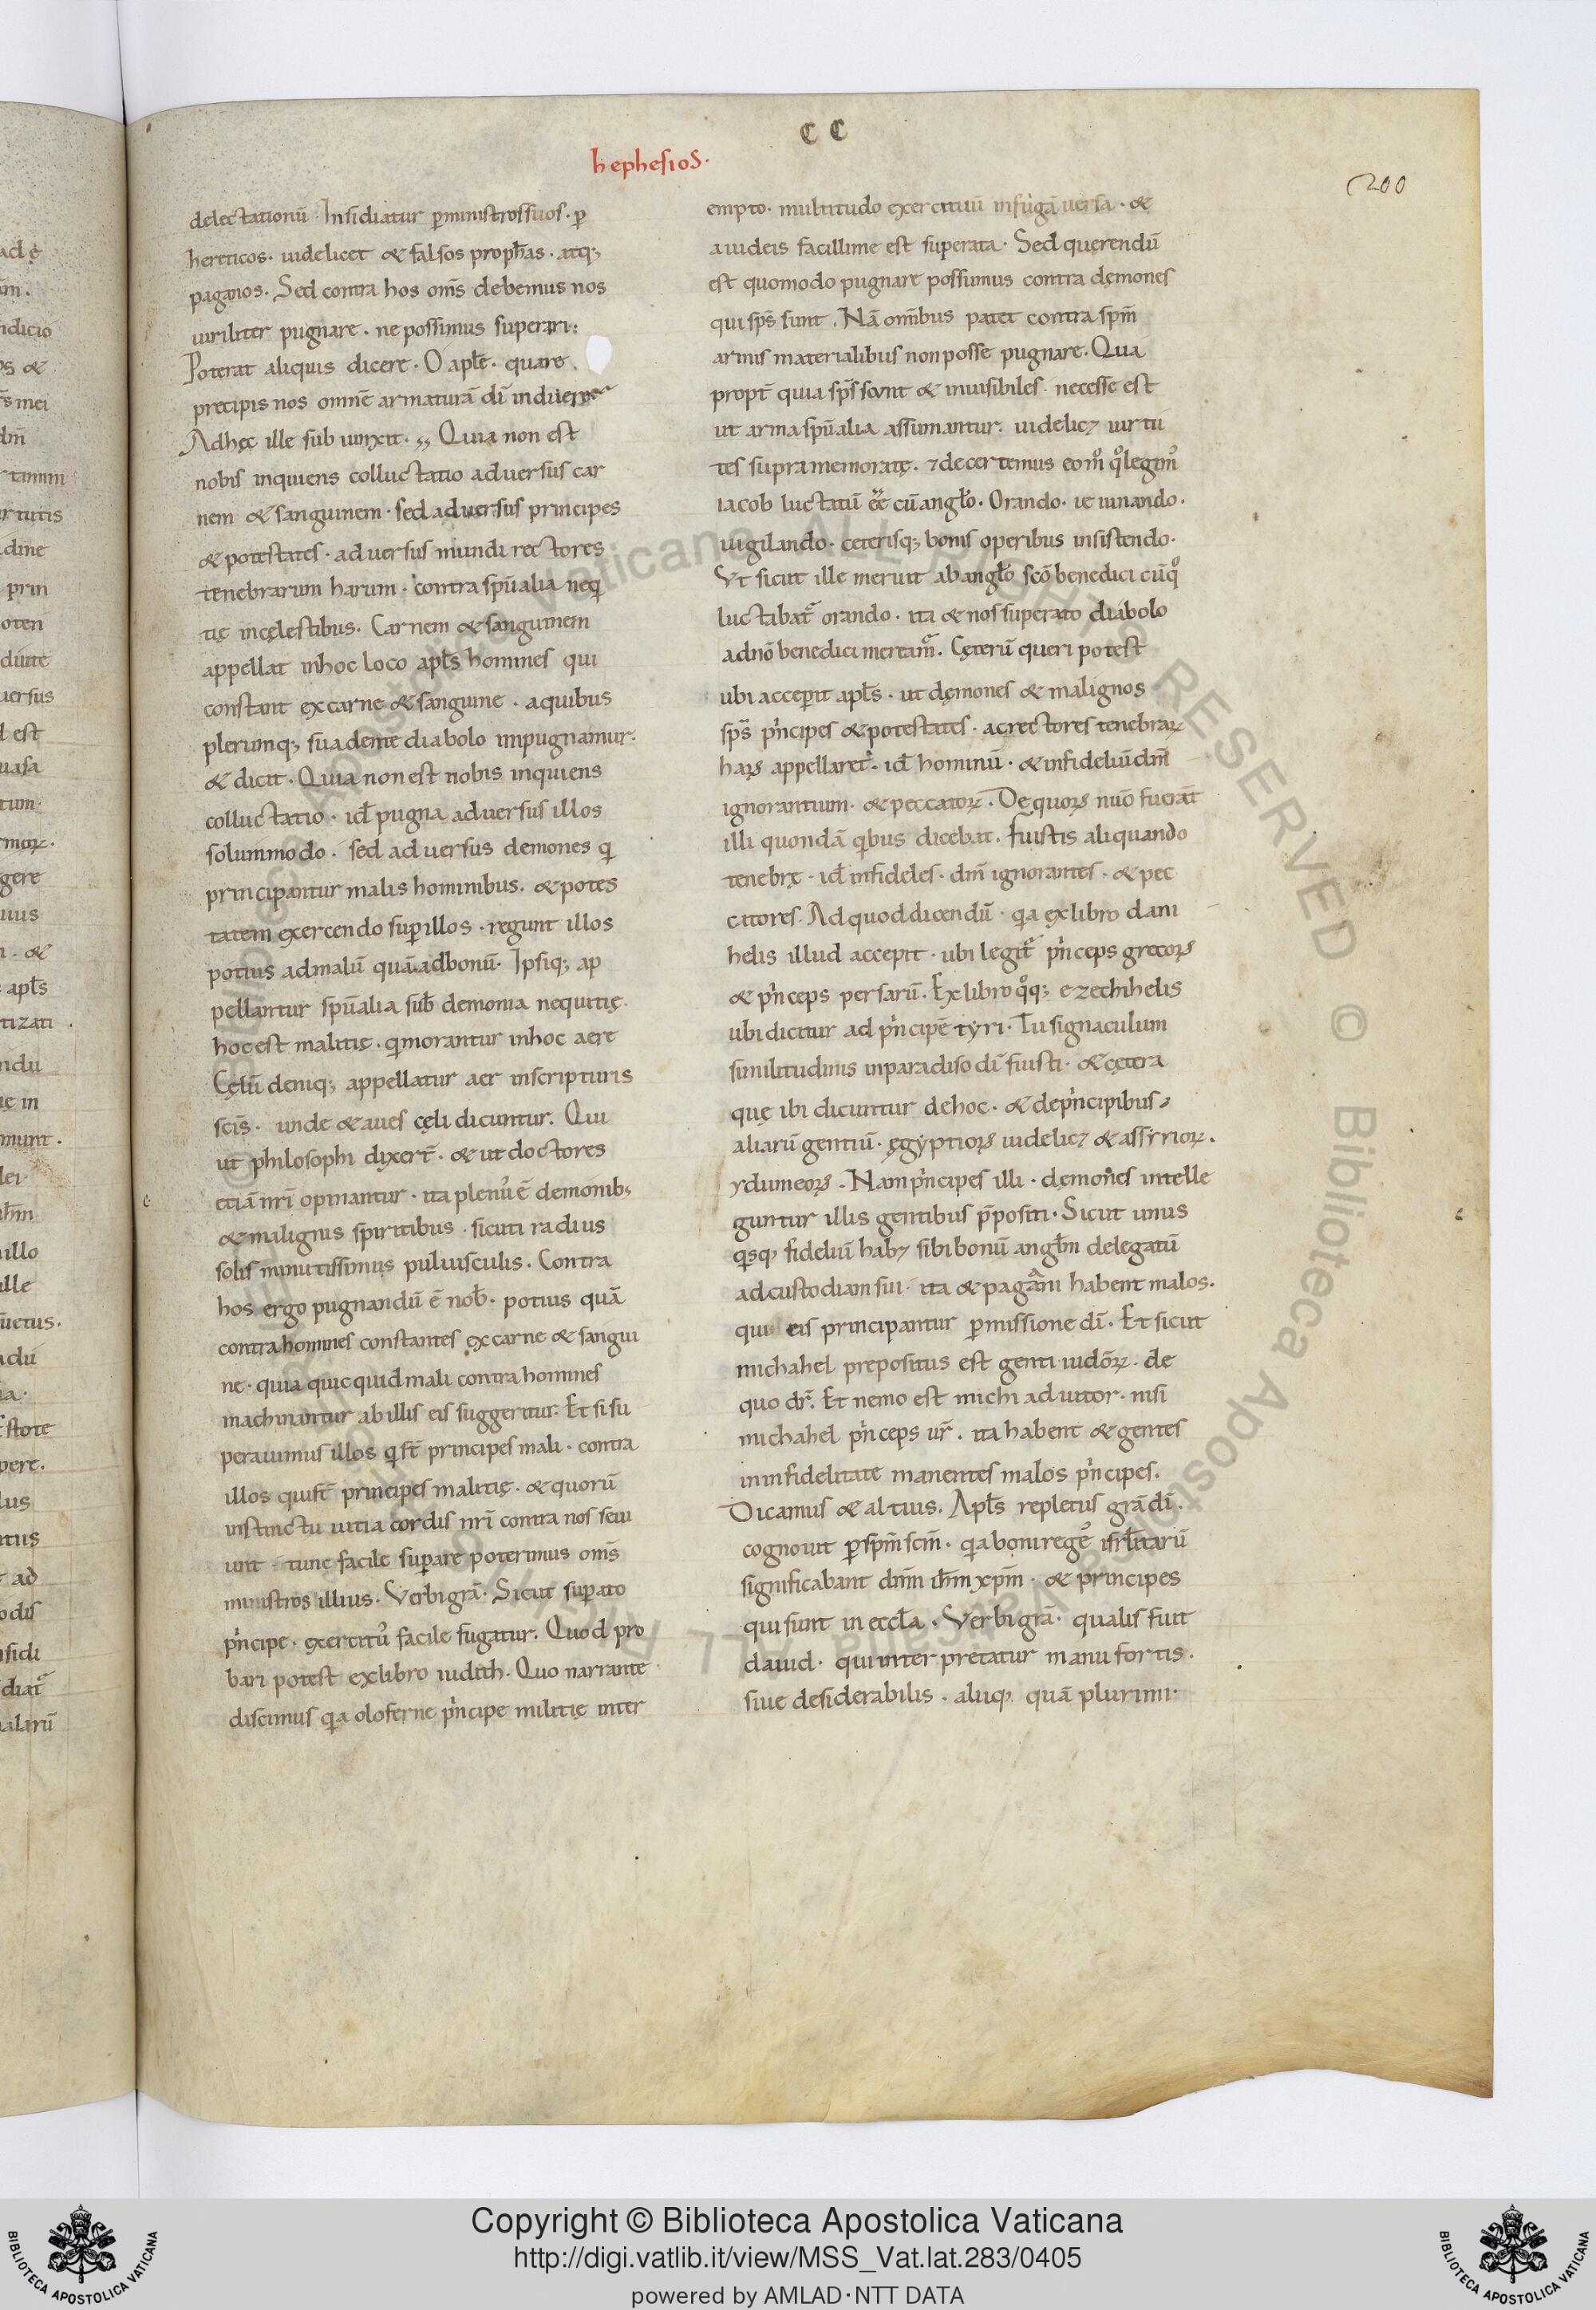 C C
hephesios.
200
delectationū. Insidiatur p̲ministros suos. p̲
hereticos. uidelicet & falsos proph̄as. atq;
paganos. Sed contra hos om̄s debemus nos
uiriliter pugnare. ne possimus superari:
Poterat aliquis dicere. O apl̄e. quare
precipis nos omnē armaturā dī induere
Adhęc ille subiunxit. Quia non est
nobis inquiens colluctatio aduersus car
nem & sanguinem. sed aduersus principes
& potestates. aduersus mundi rectores
tenebrarum harum. contra spūalia neq
tię incęlestibus. Carnem & sanguinem
appellat inhoc loco apl̄s homines qui
constant excarne & sanguine. aquibus
plerumq; suadente diabolo impugnamur.
& dicit. Quia non est nobis inquiens
colluctatio. id̄ pugna aduersus illos
solummodo. sed aduersus demones q
principantur malis hominibus. & potes
tatem exercendo sup̲ illos. regunt illos
potius admalū quā adbonū. Ipsiq; ap
pellantur spūalia sub̄ demonia nequitię.
hoc est malitię. q morantur inhoc aere
Cęlū deniq; appellatur aer inscripturis
sc̄is. unde & aues cęli dicuntur. Qui
ut philosophi dixer̄. & ut doctores
etiā nr̄i opinantur. ita plen' ē demonib;
& malignis spiritibus. sicuti radius
solis minutissimus puluisculis. Contra
hos ergo pugnandū ē nob̄. potius quā
contra homines constantes excarne & sangui
ne. quia quicquid mali contra homines
machinantur ab illis eis suggeritur. Et si su
perauimus illos q st̄ principes mali. contra
illos qui st̄ principes malitię. & quorū
instinctu uitia cordis nr̄i contra nos seui
unt. tunc facile sup̲are poterimus om̄s
ministros illius. Verbi grā. Sicut sup̲ato
pⁱncipe. exercit' facile fugatur. Quod pro
bari potest exlibro iudith. Quo narrante
discimus qa oloferne pⁱncipe militię inter
empto. multitudo exercituū infugā uersa. &
aiudeis facillime est superata. Sed querendū
est quomodo pugnare possumus contra dęmones
qui sp̄s sunt. Nā om̄ibus patet contra sp̄m
armis materialibus non posse pugnare. Qua
propt̄ quia sp̄s sunt & inuisibiles. necesse est
ut arma spūalia assumantur. uidelicȝ uirtu
tes supra memoratę. ⁊ decertemus eoᵐ qᵒ legim'
iacob luctatū eē cū angl̄o. Orando. ieiunando.
uigilando. ceterisq; bonis operibus insistendo.
Vt sicut ille meruit ab angl̄o sc̄o benedici cū qᵒ
luctabat̄ orando. ita & nos superato diabolo
adn̄o benedici meream̄. Cęterū queri potest
ubi accep̲it apl̄s. ut dęmones & malignos
sp̄s pⁱncipes & potestates. ac rectores tenebraꝝ
haꝝ appellaret. id̄ hominū. & infideliū dm̄
ignorantium. & peccatoꝝ. De quoꝝ nūo fuerāt
illi quondā qibus dicebat. Fuistis aliquando
tenebrę. id̄ infideles. dm̄ ignorantes. & pec
catores. Ad quod dicendū. qa exlibro dani
helis illud accepit. ubi legit̄ pⁱnceps grecoꝝ
& pⁱnceps persarū. Ex libro qᵒq; ezechihelis
ubi dicitur ad pⁱncipē tyri. Tu signaculum
similitudinis inparadiso dī fuisti. & cętera
quę ibi dicuntur dehoc. & depⁱncipibus
aliarū gentiū. ęgyptioꝝ uidelicȝ & assyrioꝝ.
ydumeoꝝ. Nam pⁱncipes illi. dęmones intelle
guntur illis gentibus p̄positi. Sicut unus
qisq; fideliū habȝ sibi bonū angl̄m delegatū
ad custodiam sui. ita & pagani habent malos.
qui eis principantur p̲missione dī. Et sicut
michahel prepositus est genti iudōꝝ. de
quo dr̄. Et nemo est michi adiutor. nisi
michahel pⁱnceps ur̄. ita habent & gentes
ininfidelitate manentes malos pⁱncipes.
Dicamus & altius. Apl̄s repletus grā dī.
cognouit p̲ sp̄m sc̄m. qa boni reges isrl̄itarū
significabant dn̄m ih̄m xp̄m. & principes
qui sunt in eccl̄a. Verbi grā. qualis fuit
dauid. qui interpretatur manu fortis.
siue desiderabilis. aliiq; quā plurimi.
Copyright © Biblioteca Apostolica Vaticana
http://digi.vatlib.it/view/MSS_Vat.lat.283/0405
powered by AMLAD·NTT DATA